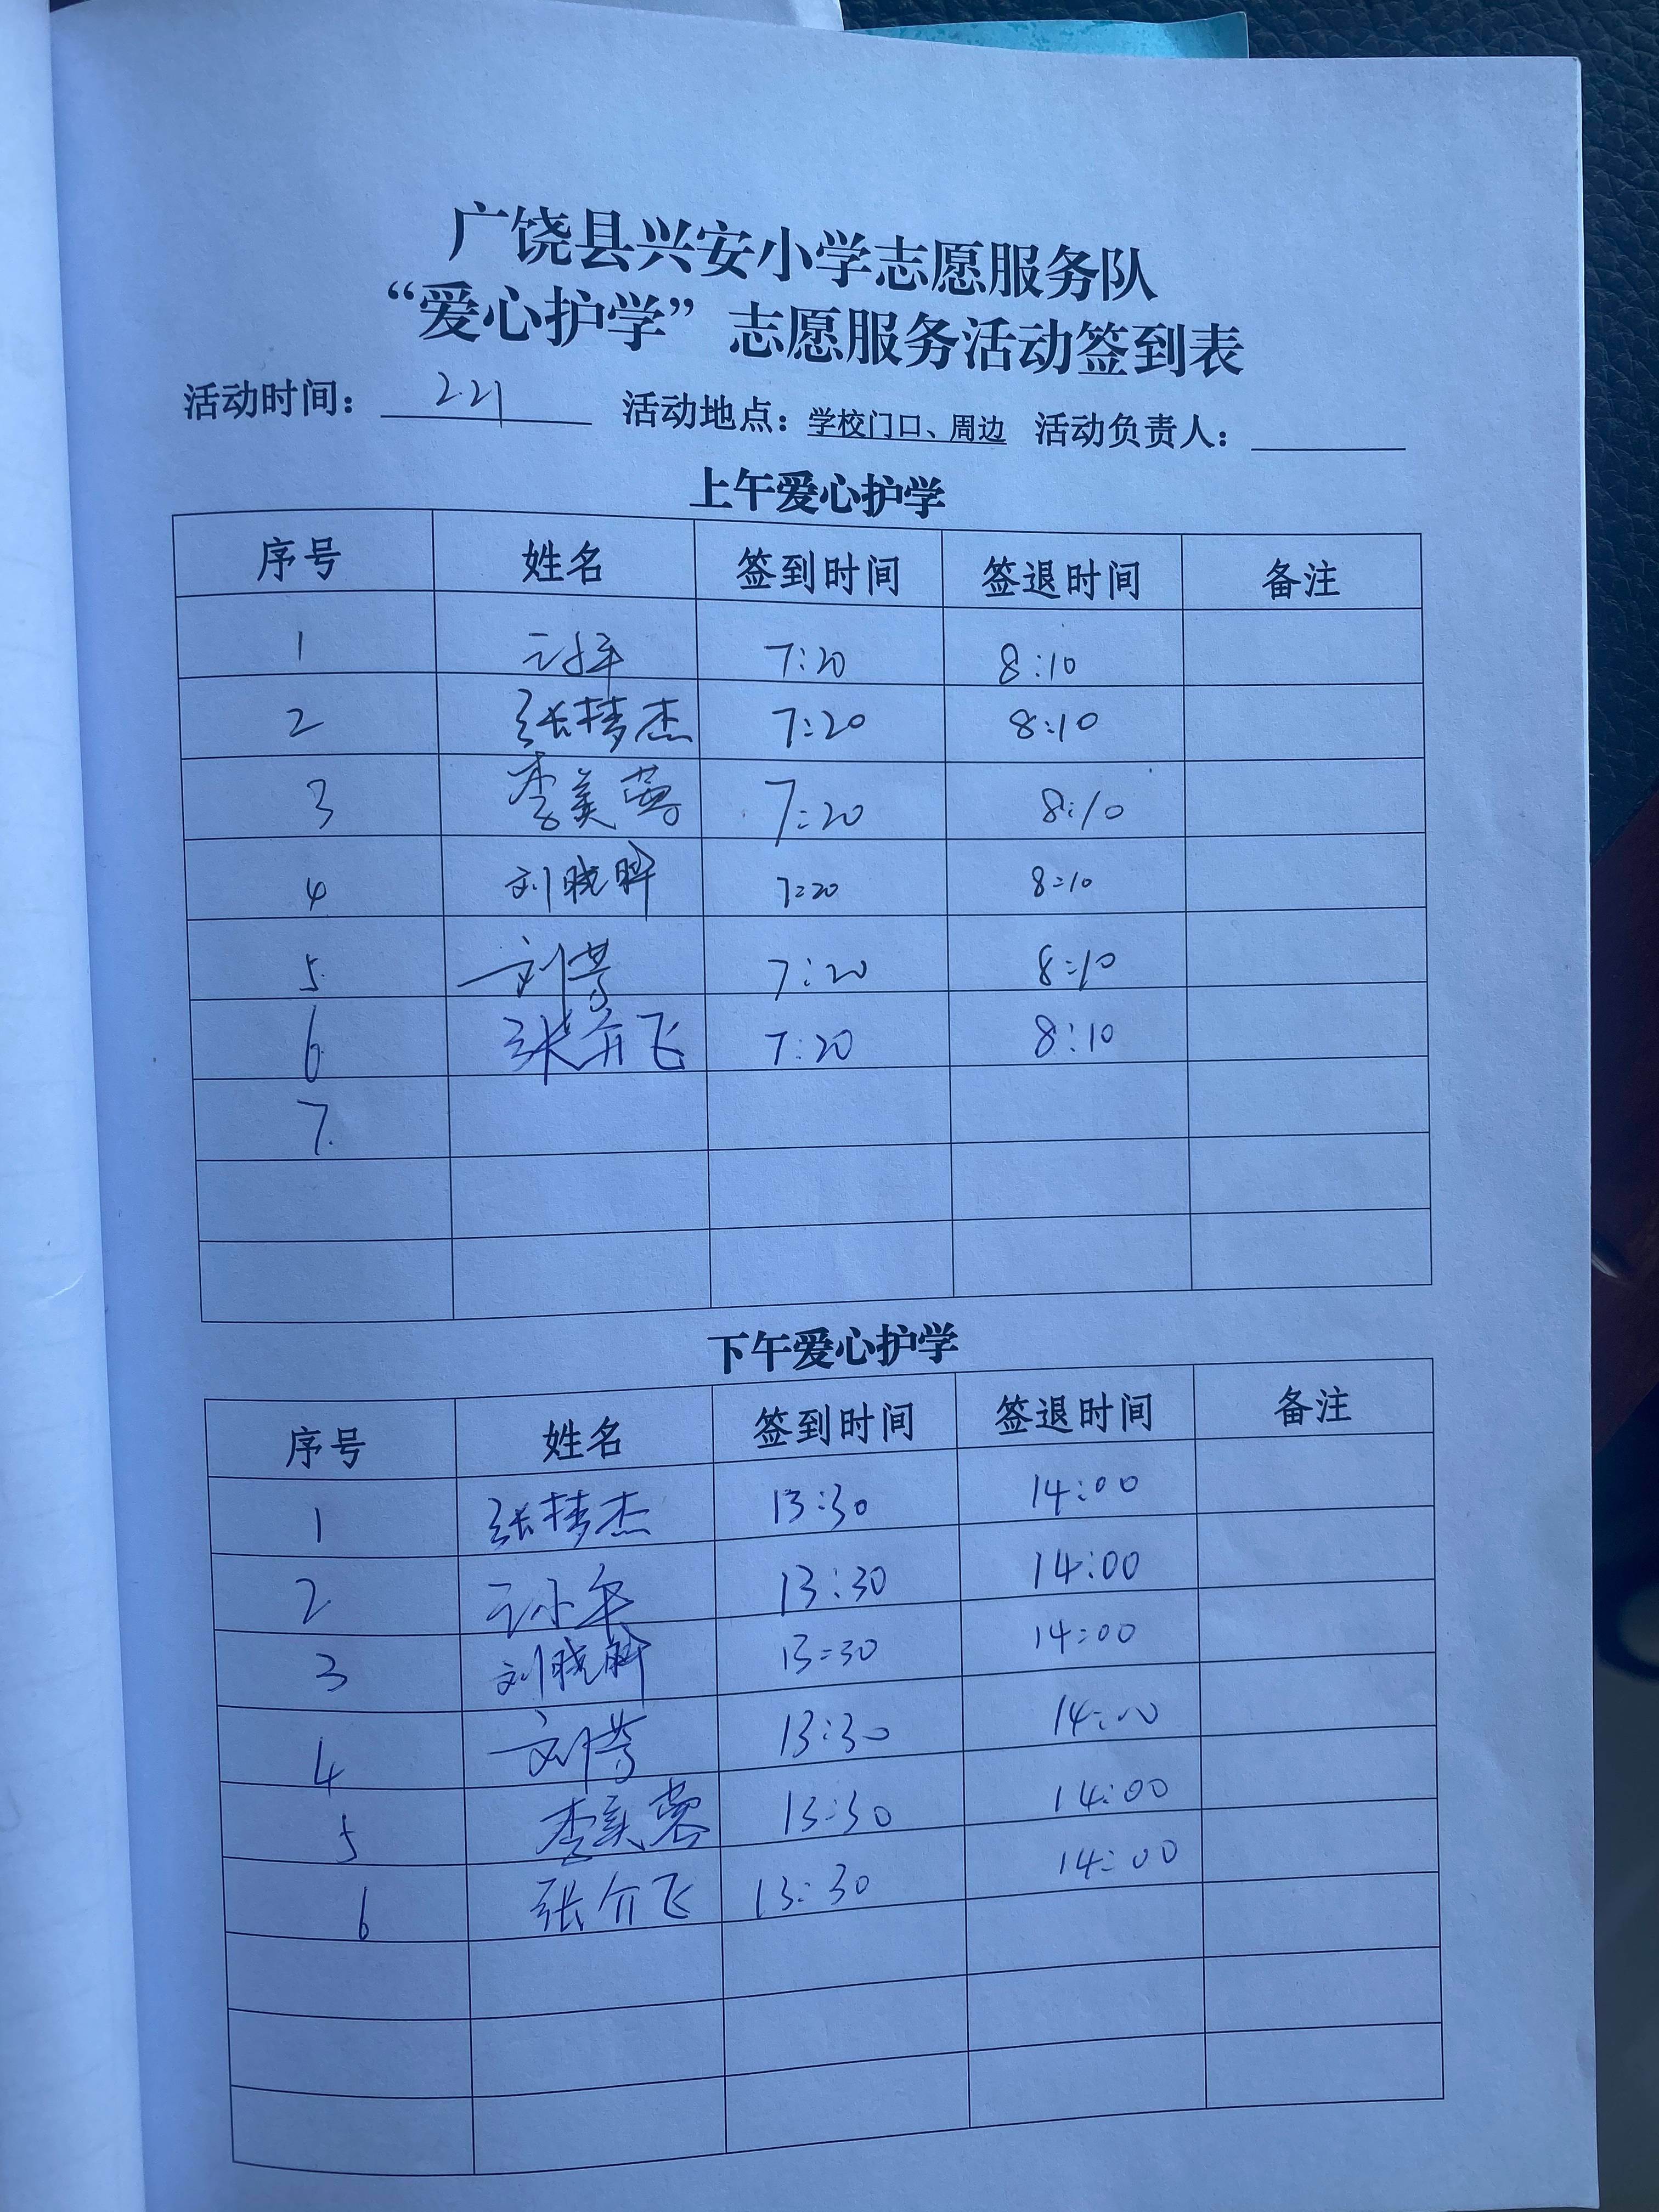 广饶县兴安小学志愿服务队
“爱心护学”志愿服务活动签到表
活动时间： 2.21 活动地点：学校门口、周边 活动负责人：
上午爱心护学
序号 姓名 签到时间 签退时间 备注
1 7:20 8:10
2 张梦杰 7:20 8:10
3 李美蓉 7:20 8:10
4 刘晓 7:20 8:10
5. 刘芳 7:20 8:10
6. 张介飞 7:20 8:10
7.
下午爱心护学
序号 姓名 签到时间 签退时间 备注
1 张梦杰 13:30 14:00
2 13:30 14:00
3 刘晓 13:30 14:00
4 刘芳 13:30 14:00
5 李美蓉 13:30 14:00
6 张介飞 13:30 14:00